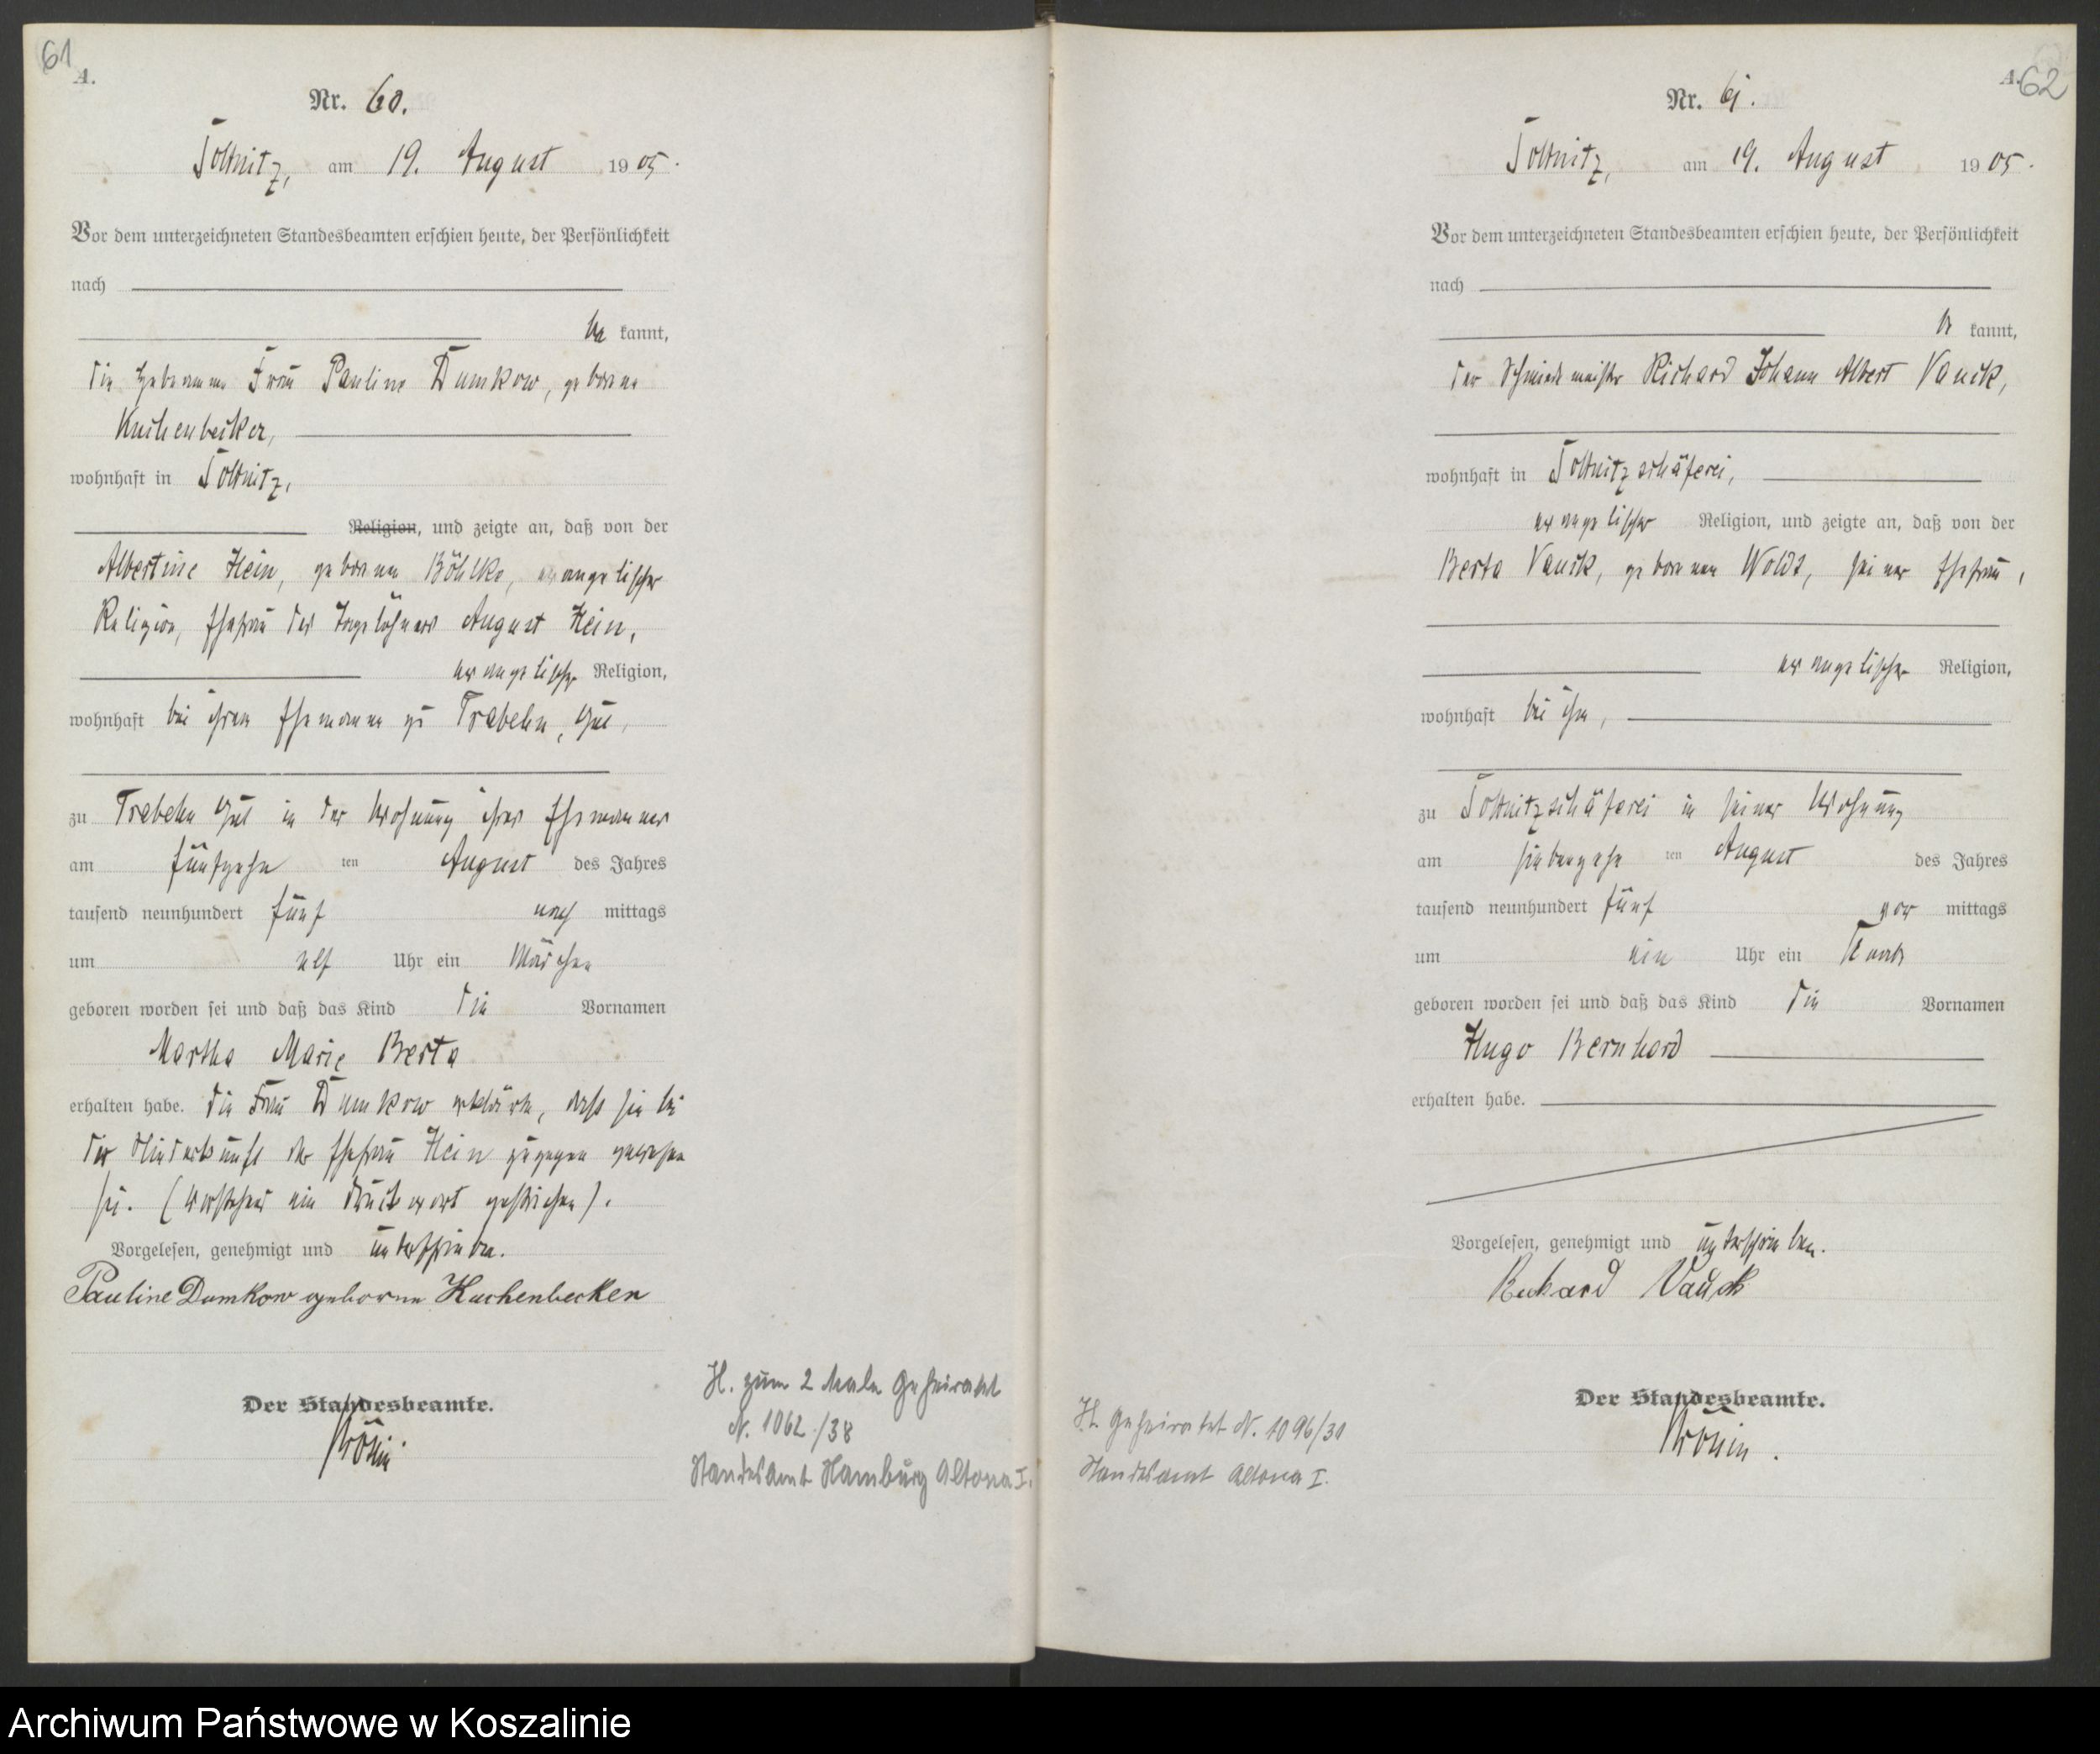 61
A.
Nr. 60.
Toltnitz, am 19. August 1905.
Vor dem unterzeichneten Standesbeamten erschien heute, der Persönlichkeit
nach
be kannt,
die Hebamme Frau Pauline Dumkow, geborene
Kuchenbecker,
wohnhaft in Toltnitz,
Religion, und zeigte an, daß von der
Albertine Hein, geborenen Böhlke, evangelischer
Religion, Ehefrau des Tagelöhners August Hein,
evangelischer Religion,
wohnhaft bei ihrem Ehemanne zu Trabehn, Gut,
zu Trabehn Gut in der Wohnung ihres Ehemannes
am fünfzehn ten August des Jahres
tausend neunhundert fünf nach mittags
um elf Uhr ein Mädchen
geboren worden sei und daß das Kind die Vornamen
Martha Marie Berta
erhalten habe. Die Frau Dumkow erklärte, dass sie bei
der Niederkunft der Ehefrau Hein zugegen gewesen
sei. (Vorstehend ein Druckwort gestrichen).
Vorgelesen, genehmigt und unterschrieben.
Pauline Dumkow geborne Kuchenbecker
Der Standesbeamte.
H. zum 2 Male geheiratet
N. 1062/38
Standesamt Hamburg Altona I.
A. 62
Nr. 61.
Toltnitz, am 19. August 1905.
Vor dem unterzeichneten Standesbeamten erschien heute, der Persönlichkeit
nach
be kannt,
der Schmiedemeister Richard Johann Albert Vauck,
wohnhaft in Toltnitzschäferei,
evangelischer Religion, und zeigte an, daß von der
Berta Vauck, geborenen Woldt, seiner Ehefrau,
evangelischer Religion,
wohnhaft bei ihm,
zu Toltnitzschäferei in seiner Wohnung
am siebenzehn ten August des Jahres
tausend neunhundert fünf vor mittags
um ein Uhr ein Knabe
geboren worden sei und daß das Kind die Vornamen
Hugo Bernhard
erhalten habe.
Vorgelesen, genehmigt und unterschrieben.
Richard Vauck
Der Standesbeamte.
H. geheiratet N. 1096/31
Standesamt Altona I.
Archiwum Państwowe w Koszalinie